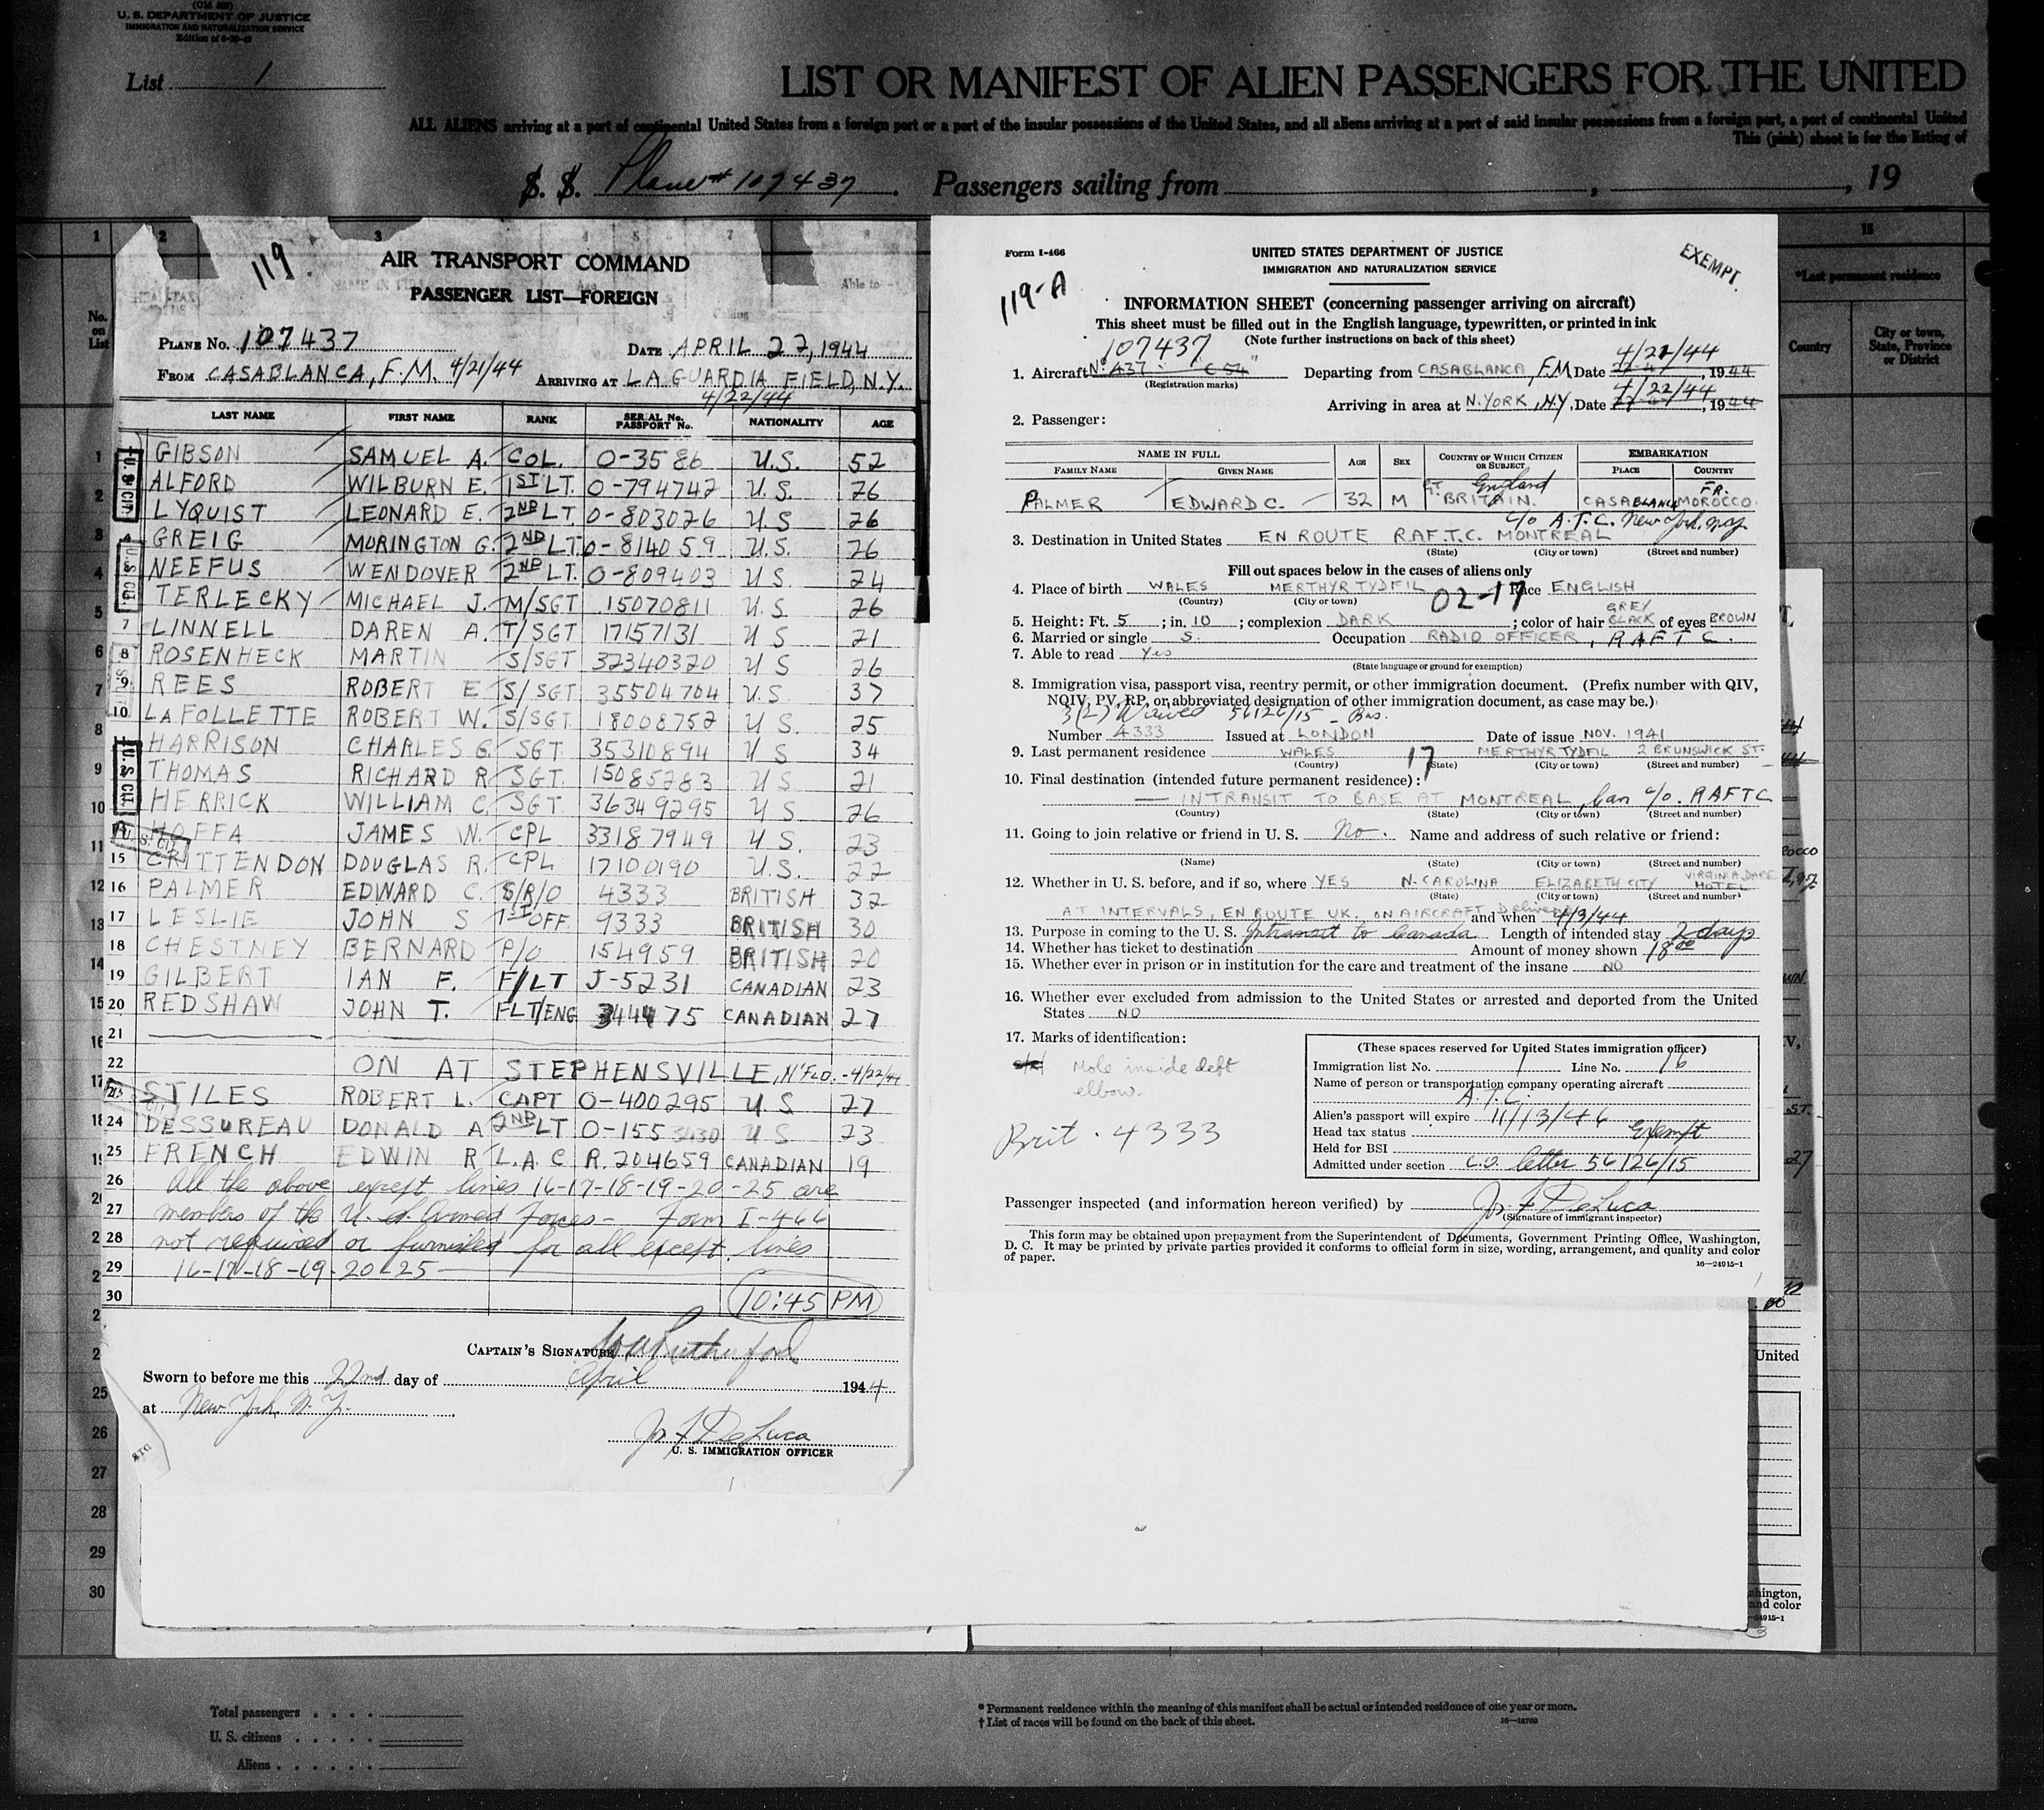 (Old 500)
U. S. DEPARTMENT OF JUSTICE
IMMIGRATION AND NATURALIZATION SERVICE
List 1
LIST OR MANIFEST OF ALIEN PASSENGERS FOR THE UNITED
ALL ALIENS arriving at a port of continental United States from a foreign port or a port of the insular possessions of the United States, and all aliens arriving at a port of said insular possessions from a foreign port, a port of continental United
This (pink) sheet is for the listing of
S. S. Plane # 107437 . Passengers sailing from , , 19
119.
AIR TRANSPORT COMMAND
PASSENGER LIST—FOREIGN
PLANE NO. 107437 DATE APRIL 22, 1944
FROM CASABLANCA, F.M. 4/21/44 ARRIVING AT LA GUARDIA FIELD, N.Y.
4/22/44
LAST NAME FIRST NAME RANK SERIAL NO. PASSPORT NO. NATIONALITY AGE
GIBSON SAMUEL A. COL. O-3586 U.S. 52
ALFORD WILBURN E. 1ST LT. O-794742 U.S. 26
LYQUIST LEONARD E. 2ND LT O-803026 U.S 26
GREIG MORINGTON G. 2ND LT O-814059 U.S. 26
NEEFUS WENDOVER 2ND LT. O-809403 U.S 24
TERLECKY MICHAEL J. M/SGT 15070811 U.S 26
7 LINNELL DAREN A. T/SGT 17157131 U S 21
8 ROSENHECK MARTIN S/SGT 32340320 U S 26
9 REES ROBERT E S/SGT 35504704 U.S. 37
10 LAFOLLETTE ROBERT W. S/SGT 18008752 U S 25
HARRISON CHARLES G. SGT. 35310894 U S 34
THOMAS RICHARD R SGT. 15085283 U S 21
HERRICK WILLIAM C. SGT. 36349295 U S 26
HOFFA JAMES W. CPL 33187949 U S. 23
15 CRITTENDON DOUGLAS R. CPL 17100190 U.S. 22
16 PALMER EDWARD C. S/R/O 4333 BRITISH 32
17 LESLIE JOHN S 1ST OFF. 9333 BRITISH 30
18 CHESTNEY BERNARD P/O 154959 BRITISH 20
19 GILBERT IAN F. F/LT J-5231 CANADIAN 23
20 REDSHAW JOHN T. FLT/ENG 344475 CANADIAN 27
21
22 ON AT STEPHENSVILLE, N'FLD. -4/22/44
STILES ROBERT L. CAPT O-400295 U.S 27
24 DESSUREAU DONALD A 2ND LT O-1553430 U S 23
25 FRENCH EDWIN R L.A.C R.204659 CANADIAN 19
26 All the above except lines 16-17-18-19-20-25 are
27 members of the U.S. Armed Forces - Form I-466
28 not required or furnished for all except lines
29 16-17-18-19-20-25
30 10:45 PM
CAPTAIN'S SIGNATURE
Sworn to before me this 22nd day of April 1944
at New York, N.Y.
Jos. F DeLuca
U. S. IMMIGRATION OFFICER
Form I-466
UNITED STATES DEPARTMENT OF JUSTICE
IMMIGRATION AND NATURALIZATION SERVICE
EXEMPT.
119-A
INFORMATION SHEET (concerning passenger arriving on aircraft)
This sheet must be filled out in the English language, typewritten, or printed in ink
(Note further instructions on back of this sheet)
107437 4/21/44
1. Aircraft No 437 C 54 Departing from CASABLANCA, F.M Date , 1944
(Registration marks) 4/22/44
Arriving in area at N. YORK, N.Y, Date , 1944
2. Passenger:
NAME IN FULL AGE SEX COUNTRY OF WHICH CITIZEN OR SUBJECT EMBARKATION
FAMILY NAME GIVEN NAME PLACE COUNTRY
England
PALMER EDWARD C. 32 M GT. BRITAIN. CASABLANCA FR. MOROCCO
c/o A.T.C. New York
3. Destination in United States EN ROUTE R.A.F.T.C. MONTREAL
(State) (City or town) (Street and number)
Fill out spaces below in the cases of aliens only
4. Place of birth WALES MERTHYR TYDFIL Race ENGLISH
(Country) (City or town) 02-17
5. Height: Ft. 5 ; in. 10 ; complexion DARK ; color of hair GREY BLACK of eyes BROWN
6. Married or single S. Occupation RADIO OFFICER, RAFTC.
7. Able to read Yes
(State language or ground for exemption)
8. Immigration visa, passport visa, reentry permit, or other immigration document. (Prefix number with QIV,
NQIV, PV, RP, or abbreviated designation of other immigration document, as case may be.)
3(2) Waived 56126/15 - Bus.
Number 4333 Issued at LONDON Date of issue NOV. 1941
9. Last permanent residence WALES 17 MERTHYR TYDFIL 2 BRUNSWICK ST.
(Country) (State) (City or town) (Street and number)
10. Final destination (intended future permanent residence):
— INTRANSIT TO BASE AT MONTREAL, Can c/o. RAFTC
(Country) (State) (City or town) (Street and number)
11. Going to join relative or friend in U. S. No. Name and address of such relative or friend:
(Name) (State) (City or town) (Street and number)
12. Whether in U. S. before, and if so, where YES N. CAROLINA ELIZABETH CITY VIRGINIA DARE HOTEL
(State) (City or town) (Street and number)
AT INTERVALS, EN ROUTE UK. ON AIRCRAFT Delivery and when 4/3/44
13. Purpose in coming to the U. S. Intransit to Canada Length of intended stay 2 days
14. Whether has ticket to destination Amount of money shown 18.00
15. Whether ever in prison or in institution for the care and treatment of the insane NO
16. Whether ever excluded from admission to the United States or arrested and deported from the United
States NO
17. Marks of identification:
Mole inside left
elbow.
Brit. 4333
(These spaces reserved for United States immigration officer)
Immigration list No. 1 Line No. 16
Name of person or transportation company operating aircraft
A.T.C.
Alien's passport will expire 11/13/46
Head tax status Exempt
Held for BSI
Admitted under section C.O. letter 56126/15
Passenger inspected (and information hereon verified) by Jos. F DeLuca
(Signature of immigrant inspector)
This form may be obtained upon prepayment from the Superintendent of Documents, Government Printing Office, Washington,
D. C. It may be printed by private parties provided it conforms to official form in size, wording, arrangement, and quality and color
of paper.
16—24915-1
15
*Last permanent residence
Country
City or town, State, Province or District
United
shington,
and color
24915-1
Total passengers
U. S. citizens
Aliens
* Permanent residence within the meaning of this manifest shall be actual or intended residence of one year or more.
† List of races will be found on the back of this sheet.